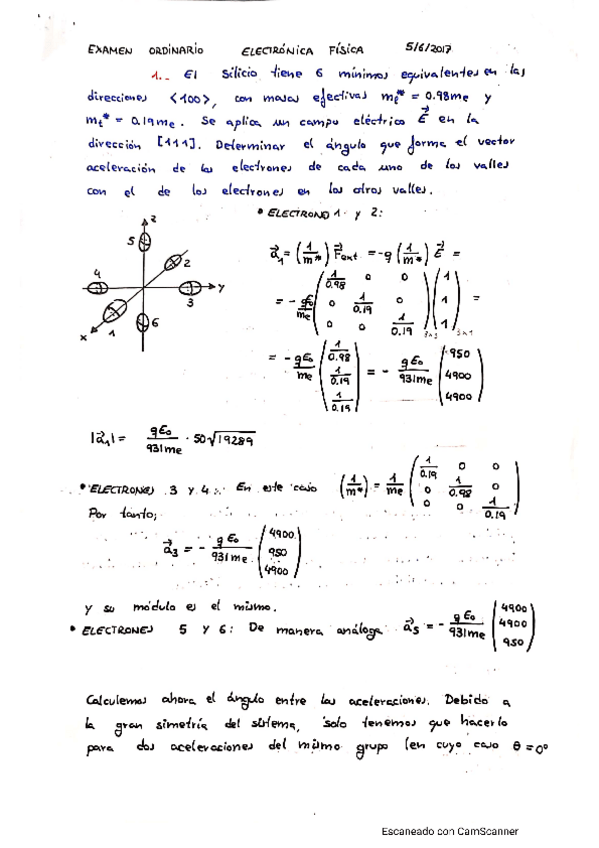 EXAMEN ORDINARIO ELECTRÓNICA FÍSICA 5/6/2017
1.- El Silicio tiene 6 mínimos equivalentes en las
direcciones <100>, con masas efectivas ml* = 0.98me y
mt* = 0.19me. Se aplica un campo eléctrico E⃗ en la
dirección [111]. Determinar el ángulo que forma el vector
aceleración de los electrones de cada uno de los valles
con el de los electrones en los otros valles.
• ELECTRONES 1 y 2:
z
5
2
4
y
3
1
6
x
a⃗₁ = (1/m*) F⃗ext = -q (1/m*) E⃗ =
= - qE₀/me (1/0.98 0 0
0 1/0.19 0
0 0 1/0.19)3x3 (1
1
1)3x1 =
= - qE₀/me (1/0.98
1/0.19
1/0.19) = - qE₀/931me (950
4900
4900)
|a⃗₁| = qE₀/931me · 50√19289
• ELECTRONES 3 y 4: En este caso (1/m*) = 1/me (1/0.19 0 0
0 1/0.98 0
0 0 1/0.19)
Por tanto;
a⃗₃ = - qE₀/931me (4900
950
4900)
y su módulo es el mismo.
• ELECTRONES 5 y 6: De manera análoga a⃗₅ = - qE₀/931me (4900
4900
950)
Calculemos ahora el ángulo entre las aceleraciones. Debido a
la gran simetría del sistema, solo tenemos que hacerlo
para dos aceleraciones del mismo grupo (en cuyo caso θ = 0º
Escaneado con CamScanner